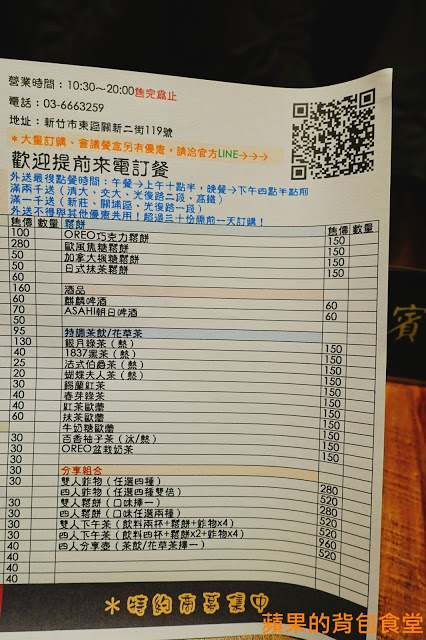 營業時間：10:30~20:00售完為止
電話：03-6663259
地址：新竹市東區關新二街119號
＊大量訂購、會議餐盒另有優惠，請洽官方LINE→→→
歡迎提前來電訂餐
外送最後點餐時間：午餐→上午十點半，晚餐→下午四點半點前
滿兩千送（清大、交大、光復路二段、高鐵）
滿一千送（新莊、關埔區、光復路一段）
外送不得與其他優惠共用！超過三十份條前一天訂購！
售價 數量 鬆餅 售價 數量
100 OREO巧克力鬆餅 150
280 歐風焦糖鬆餅 150
50 加拿大楓糖鬆餅 150
50 日式抹茶鬆餅 150
60
160 酒品
60 麒麟啤酒 60
70 ASAHI朝日啤酒 60
50
95 特調茶飲/花草茶
130 銀月綠茶（熱） 150
40 1837黑茶（熱） 150
25 法式伯爵茶（熱） 150
20 蝴蝶夫人茶（熱） 150
30 錫蘭紅茶 150
40 春芽綠茶 150
40 紅茶歐蕾 150
60 抹茶歐蕾 150
牛奶糖歐蕾 150
30 百香柚子茶（冰/熱） 150
30 OREO盆栽奶茶 150
30
30 分享組合
30 雙人鉡物（任選四種） 280
四人鉡物（任選四種雙倍） 520
30 雙人鬆餅（口味擇一） 280
30 四人鬆餅（口味任選兩種） 520
30 雙人下午茶（飲料兩杯+鬆餅+鉡物x4） 520
30 四人下午茶（飲料四杯+鬆餅x2+鉡物x4） 960
40 四人分享壺（茶飲/花草茶擇一） 520
40
40
40
＊特約商募集中
賓
蘋果的背包食堂